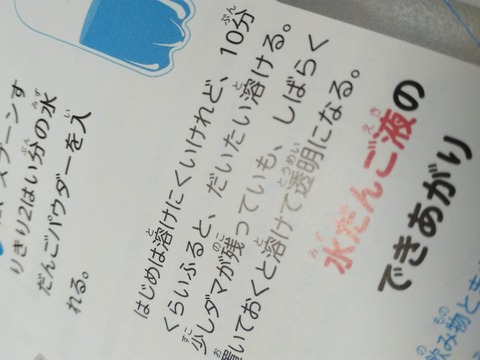 スプーンす
りきり2はい分の水
だんごパウダーを入
れる。
はじめは溶けにくいけれど、10分
くらいふると、だいたい溶ける。
少しダマが残っていても、しばらく
置いておくと溶けて透明になる。
水だんご液の
できあがり
飲み物とき